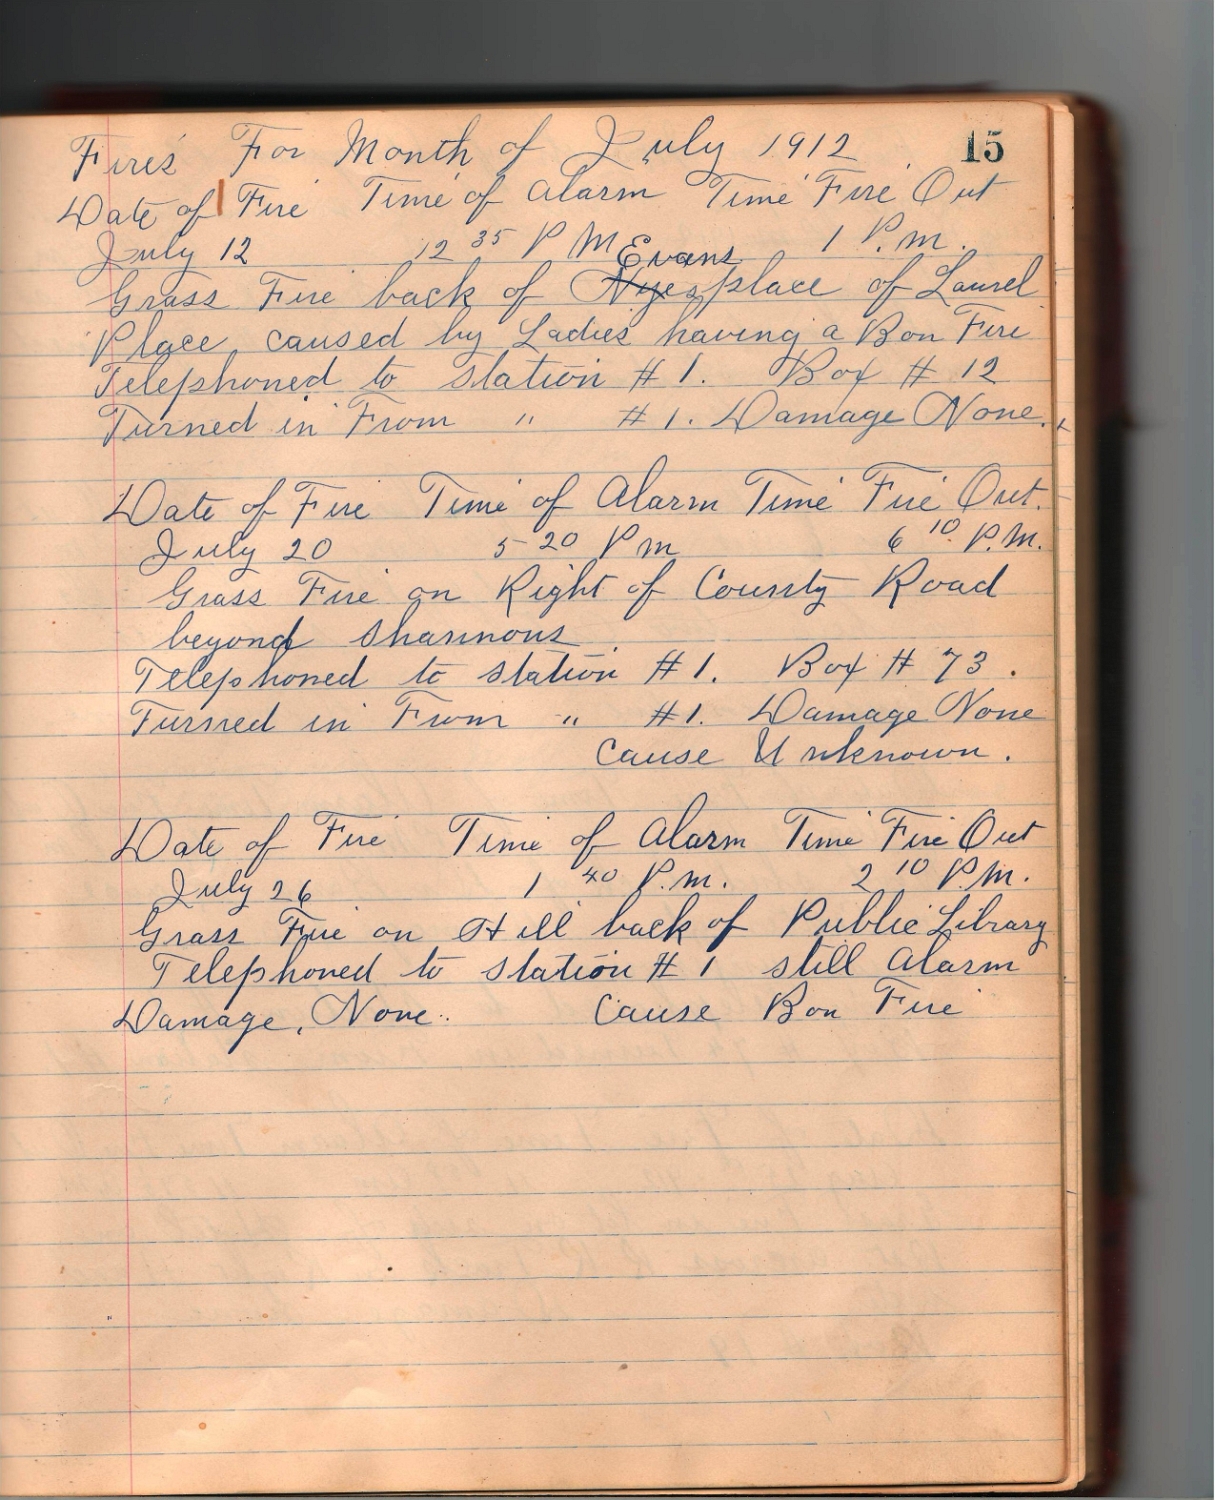 Fires For Month of July 1912 15
Date of Fire Time of Alarm Time Fire Out
July 12 12 35 P M 1 P.m.
Evans
Grass Fire back of Nyes place of Laurel
Place, caused by Ladies having a Bon Fire
Telephoned to Station # 1. Box # 12
Turned in From " # 1. Damage None.
Date of Fire Time of Alarm Time Fire Out.
July 20 5 20 P m 6 10 P.M.
Grass Fire on Right of County Road
beyond Shannons
Telephoned to Station # 1. Box # 73.
Turned in From " #1. Damage None
Cause Unknown.
Date of Fire Time of Alarm Time Fire Out
July 26 1 40 P.m. 2 10 P.M.
Grass Fire on Hill back of Public Library
Telephoned to Station # 1 still Alarm
Damage, None. Cause Bon Fire